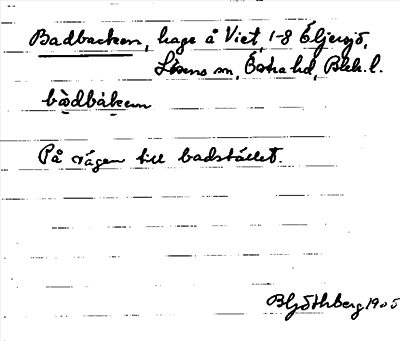 Badbacken, hage å Viet, 1-8 Eljersjö,
Lösens sn, Östra hd, Blek. l.
bòdbàken
På vägen till badstället.
BGöthberg 1905